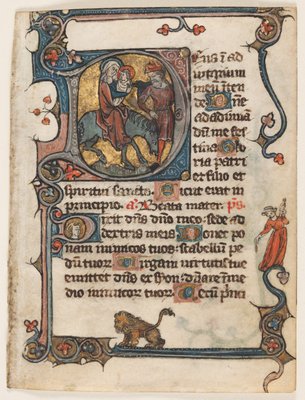 Deus ī ad
iutorium
meū īten
de Dñe
ad adiuuā
dū me fes
tina Glo
ria patri
et filio et
spiritui sancto. Sicut erat in
principio. a. Beata mater. ps.
Dixit dñs dño meo: sede ad
dextris meis. Donec po
nam inimicos tuos: scabellū pe
dum tuoꝝ. Virgam uirtutis tue
emittet dñs ex syon: dñare ī me
dio inimicoꝝ tuoꝝ. Tecū prīci